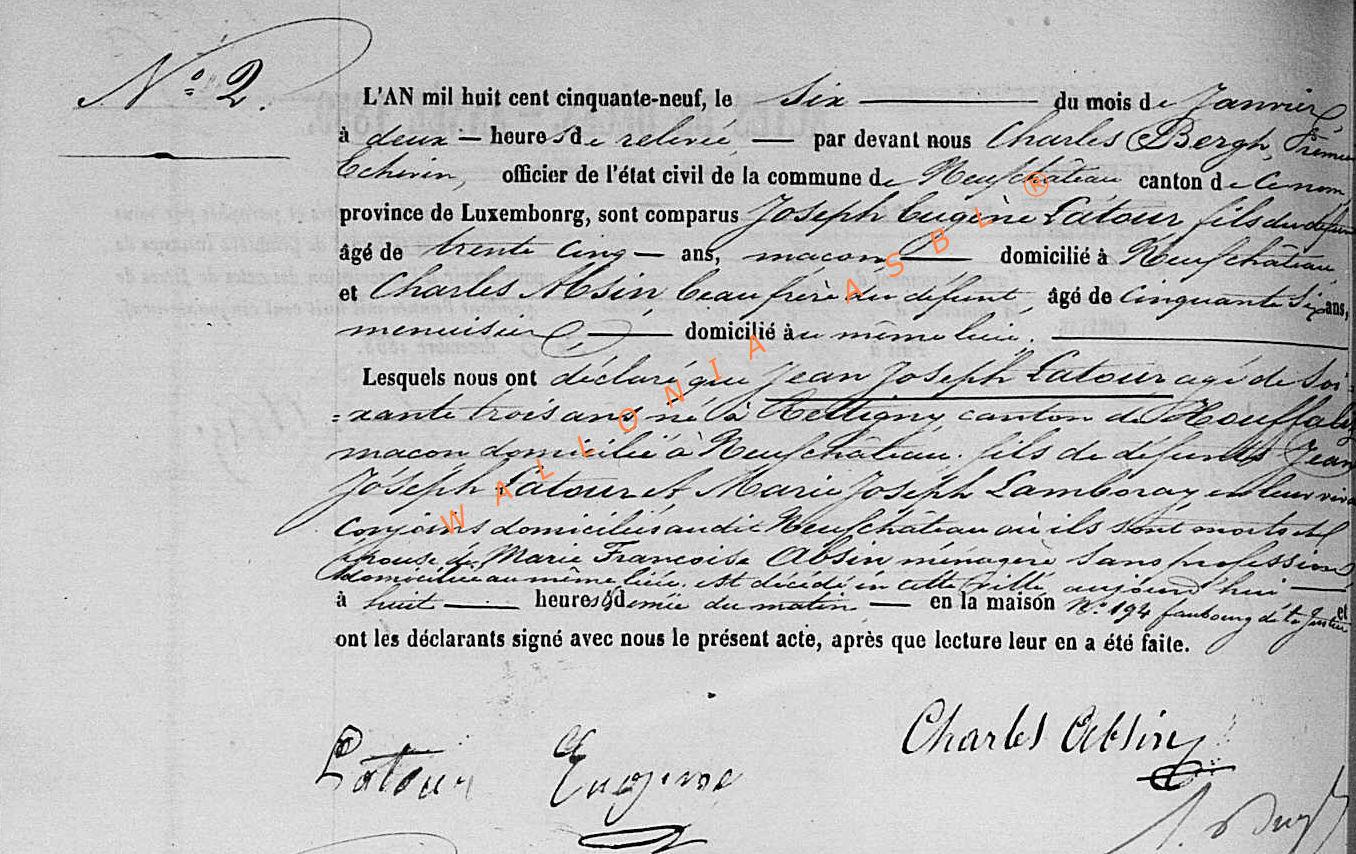 N° 2.
L'AN mil huit cent cinquante-neuf, le six du mois de Janvier
à deux heures de relevée, par devant nous Charles Bergh, Premier
Echevin, officier de l'état civil de la commune de Neufchâteau canton de ce nom
province de Luxembonrg, sont comparus Joseph Eugène Latour fils du défunt
âgé de trente cinq ans, maçon domicilié à Neufchâteau
et Charles Absin, beau frère du défunt, âgé de cinquante six ans,
menuisier domicilié au même lieu.
Lesquels nous ont déclaré que Jean Joseph Latour agé de soi-
=xante trois ans né à canton de Houffalize
maçon domicilié à Neufchâteau, fils de défunts Jean
Joseph Latour et Marie Joseph Lamboray en leur vivant
conjoins domiciliés audit Neufchâteau où ils sont morts et
épouse de Marie Françoise Absin ménagère sans profession
domiciliée au même lieu, est décédé en cette ville aujourd'hui
à huit heures & demie du matin en la maison N° 194 faubourg de la Justice et
ont les déclarants signé avec nous le présent acte, après que lecture leur en a été faite.
Latour Eugene
Charles Absin
WALLONIA ASBL ®